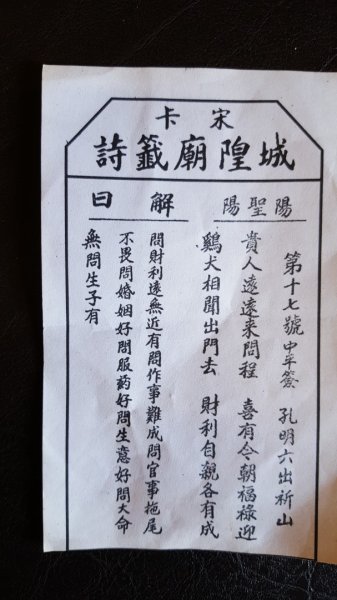 宋卡
城隍廟籤詩
陽聖陽
第十七號中平簽 孔明六出祈山
貴人遠遠来問程 喜有今朝福祿迎
鷄犬相聞出門去 財利自親各有成
解曰
問財利遠無近有問作事難成問官事拖尾
不畏問婚姻好問服药好問生意好問大命
無問生子有